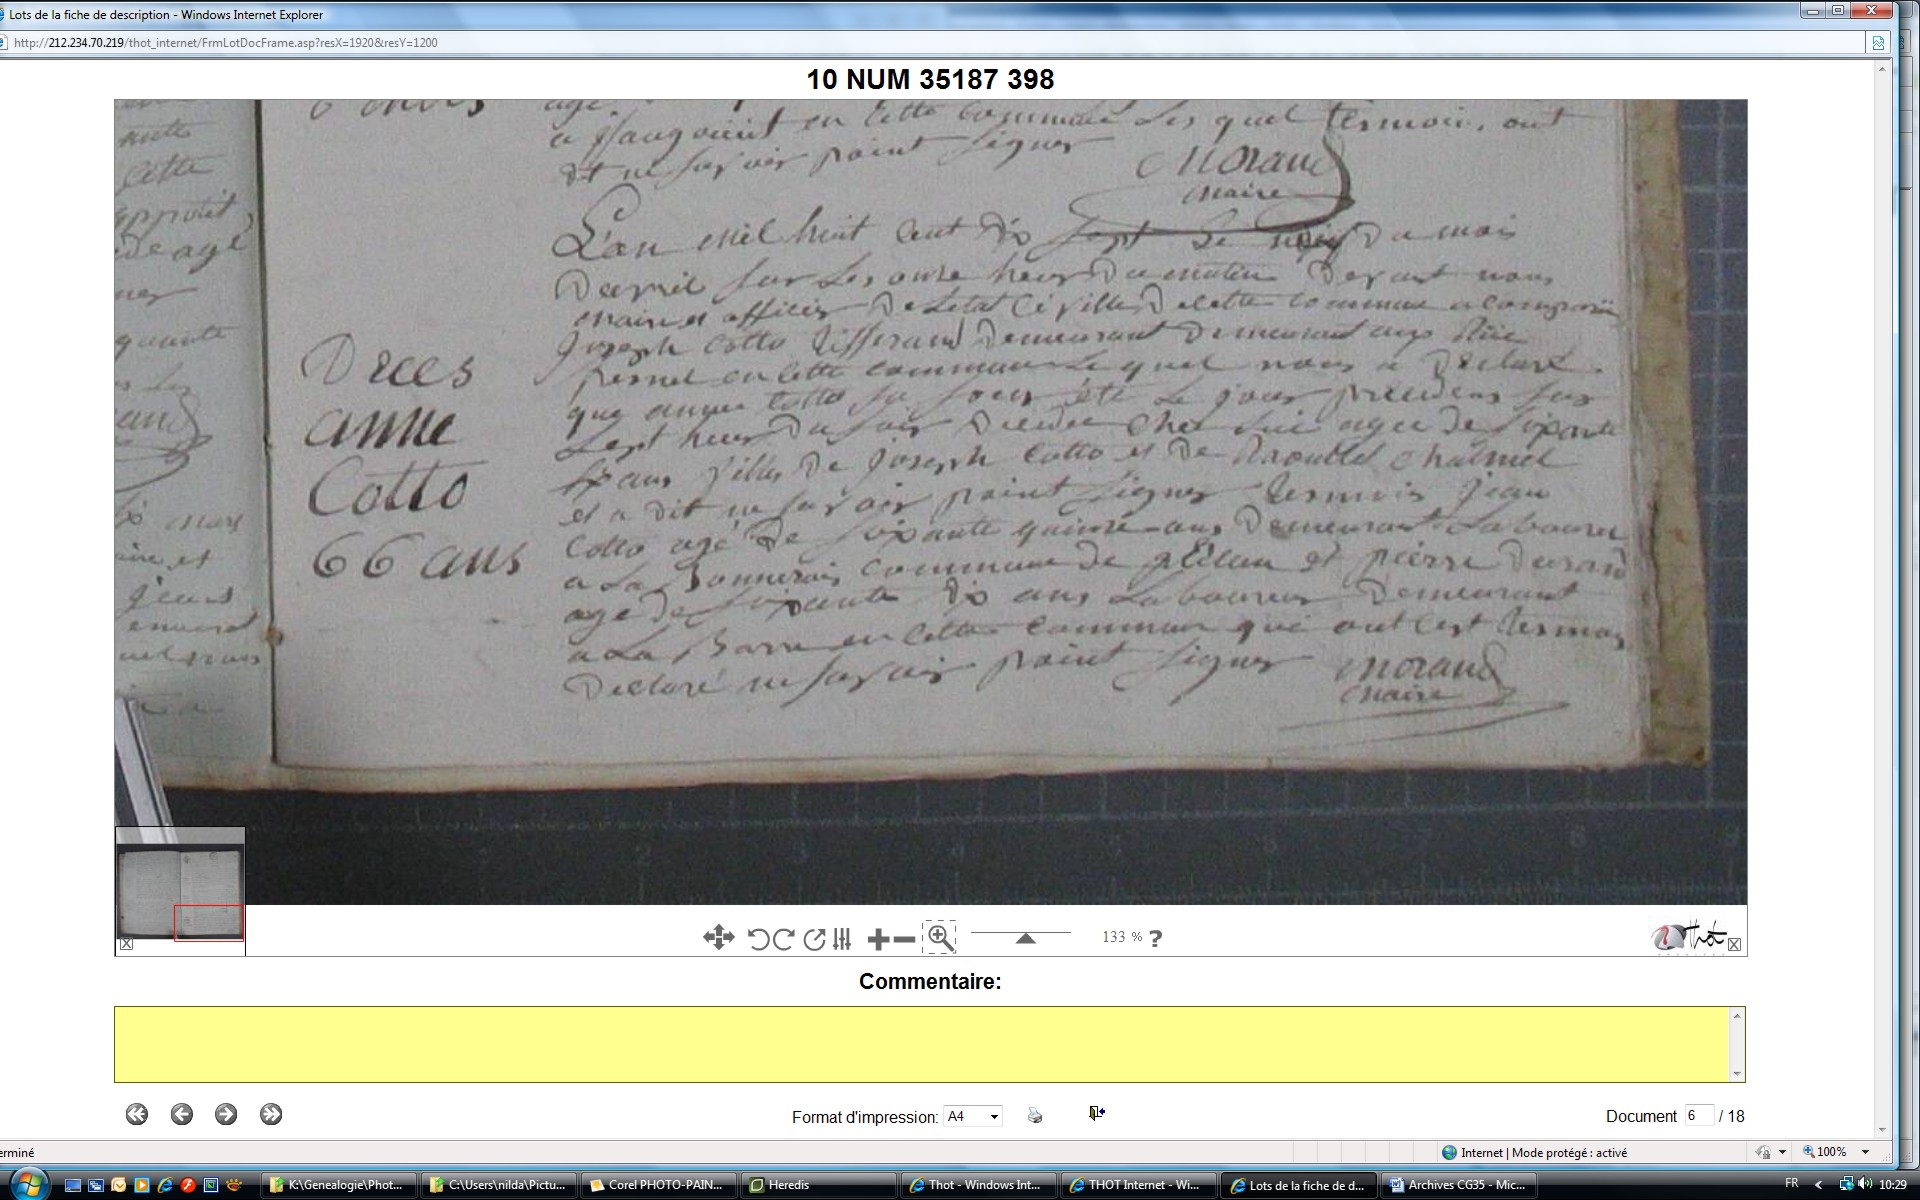 Lots de la fiche de description - Windows Internet Explorer
http://212.234.70.219/thot_internet/FrmLotDocFrame.asp?resX=1920&resY=1200
10 NUM 35187 398
en cette commune Les quel temoin, ont
dt ne savoir point signer
Morand
maire
L'an mil huit cent dix sept Le neuf du mois
Davril sur Les onze heur Du matin Devant nous
maire et officier De Letat Civille De cette commune a comparu
Joseph Cotto tisserand Demeurant Demeurant aux
en cette commune Le quel nous a Declaré
que anne Cotto sa soeur été Le jour precedens sur
Sept heur Du soir Decedee chez lui agee de soixante
six ans fille De Joseph Cotto et De Raoullet chalmel
et a dit ne savoir point signer temoin jean
Cotto agé De soixante quinze ans Demeurant Laboureur
a La Bonnerais commune De plelan et pierre Durand
age De soixante dix ans Laboureur Demeurant
a La Barre en cette commune qui ont
Declaré ne savoir point signer
Morand
maire
Deces
anne
Cotto
66 ans
cette
De agé
133 % ?
Thot
Commentaire:
Format d'impression: A4
Document 6 / 18
erminé
Internet | Mode protégé : activé
100%
K:\Genealogie\Phot...
C:\Users\nilda\Pictu...
Corel PHOTO-PAIN...
Heredis
Thot - Windows Int...
THOT Internet - Wi...
Lots de la fiche de d...
Archives CG35 - Mic...
FR
10:29